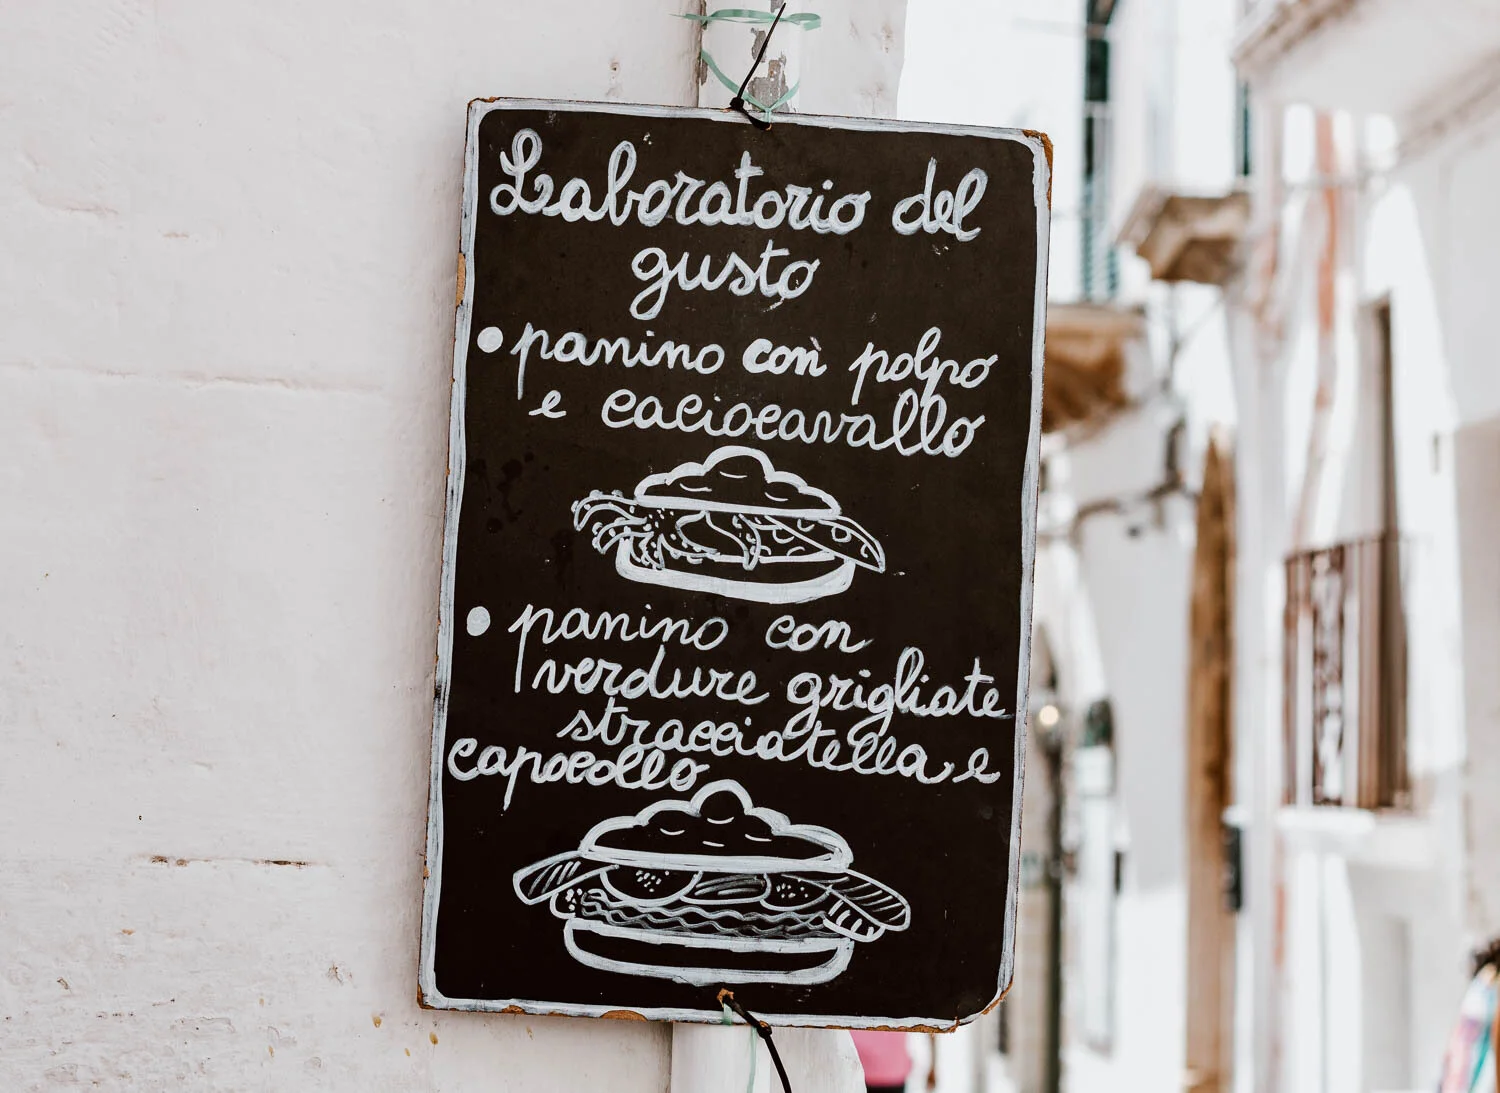 Laboratorio del
gusto
• panino con polpo
e caciocavallo
• panino con
verdure grigliate
stracciatella e
capocollo